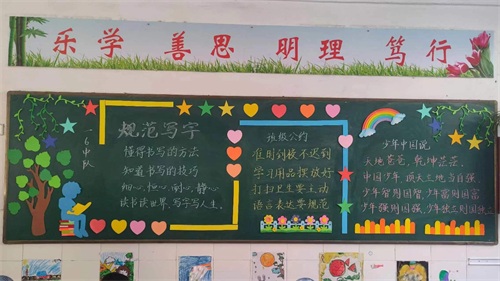 乐学 善思 明理 笃行
一6中队
规范写字
懂得书写的方法
知着书写的技巧
细心、恒心、耐心、静心
读书读世界,写字写人生。
班级公约
准时到校不迟到
学习用品摆放好
打扫卫生要主动
语言表达要规范
少年中国说
大地苍苍,乾坤茫茫
中国少年 顶天立地当自强
少年智则国智,少年富则国富
少年强则国强,少年独立则国独立